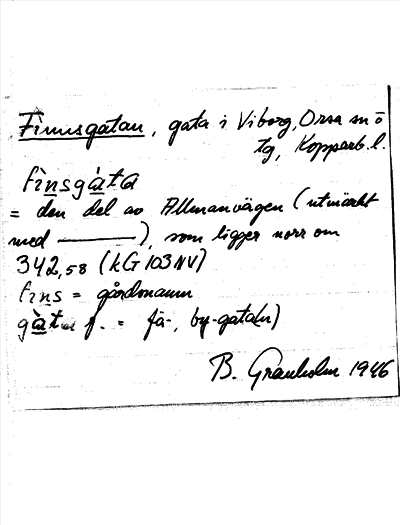 Finnsgatan, gata i Viborg, Orsa sn o
tg, Kopparb. l.
finsgàta
= den del av Allmanvägen (utmärkt
med ———), som ligger norr om
342,58 (kG 103 NV)
fins = gårdsnamn
gàta f. = fä-, by-gata(n)
B. Granholm 1946